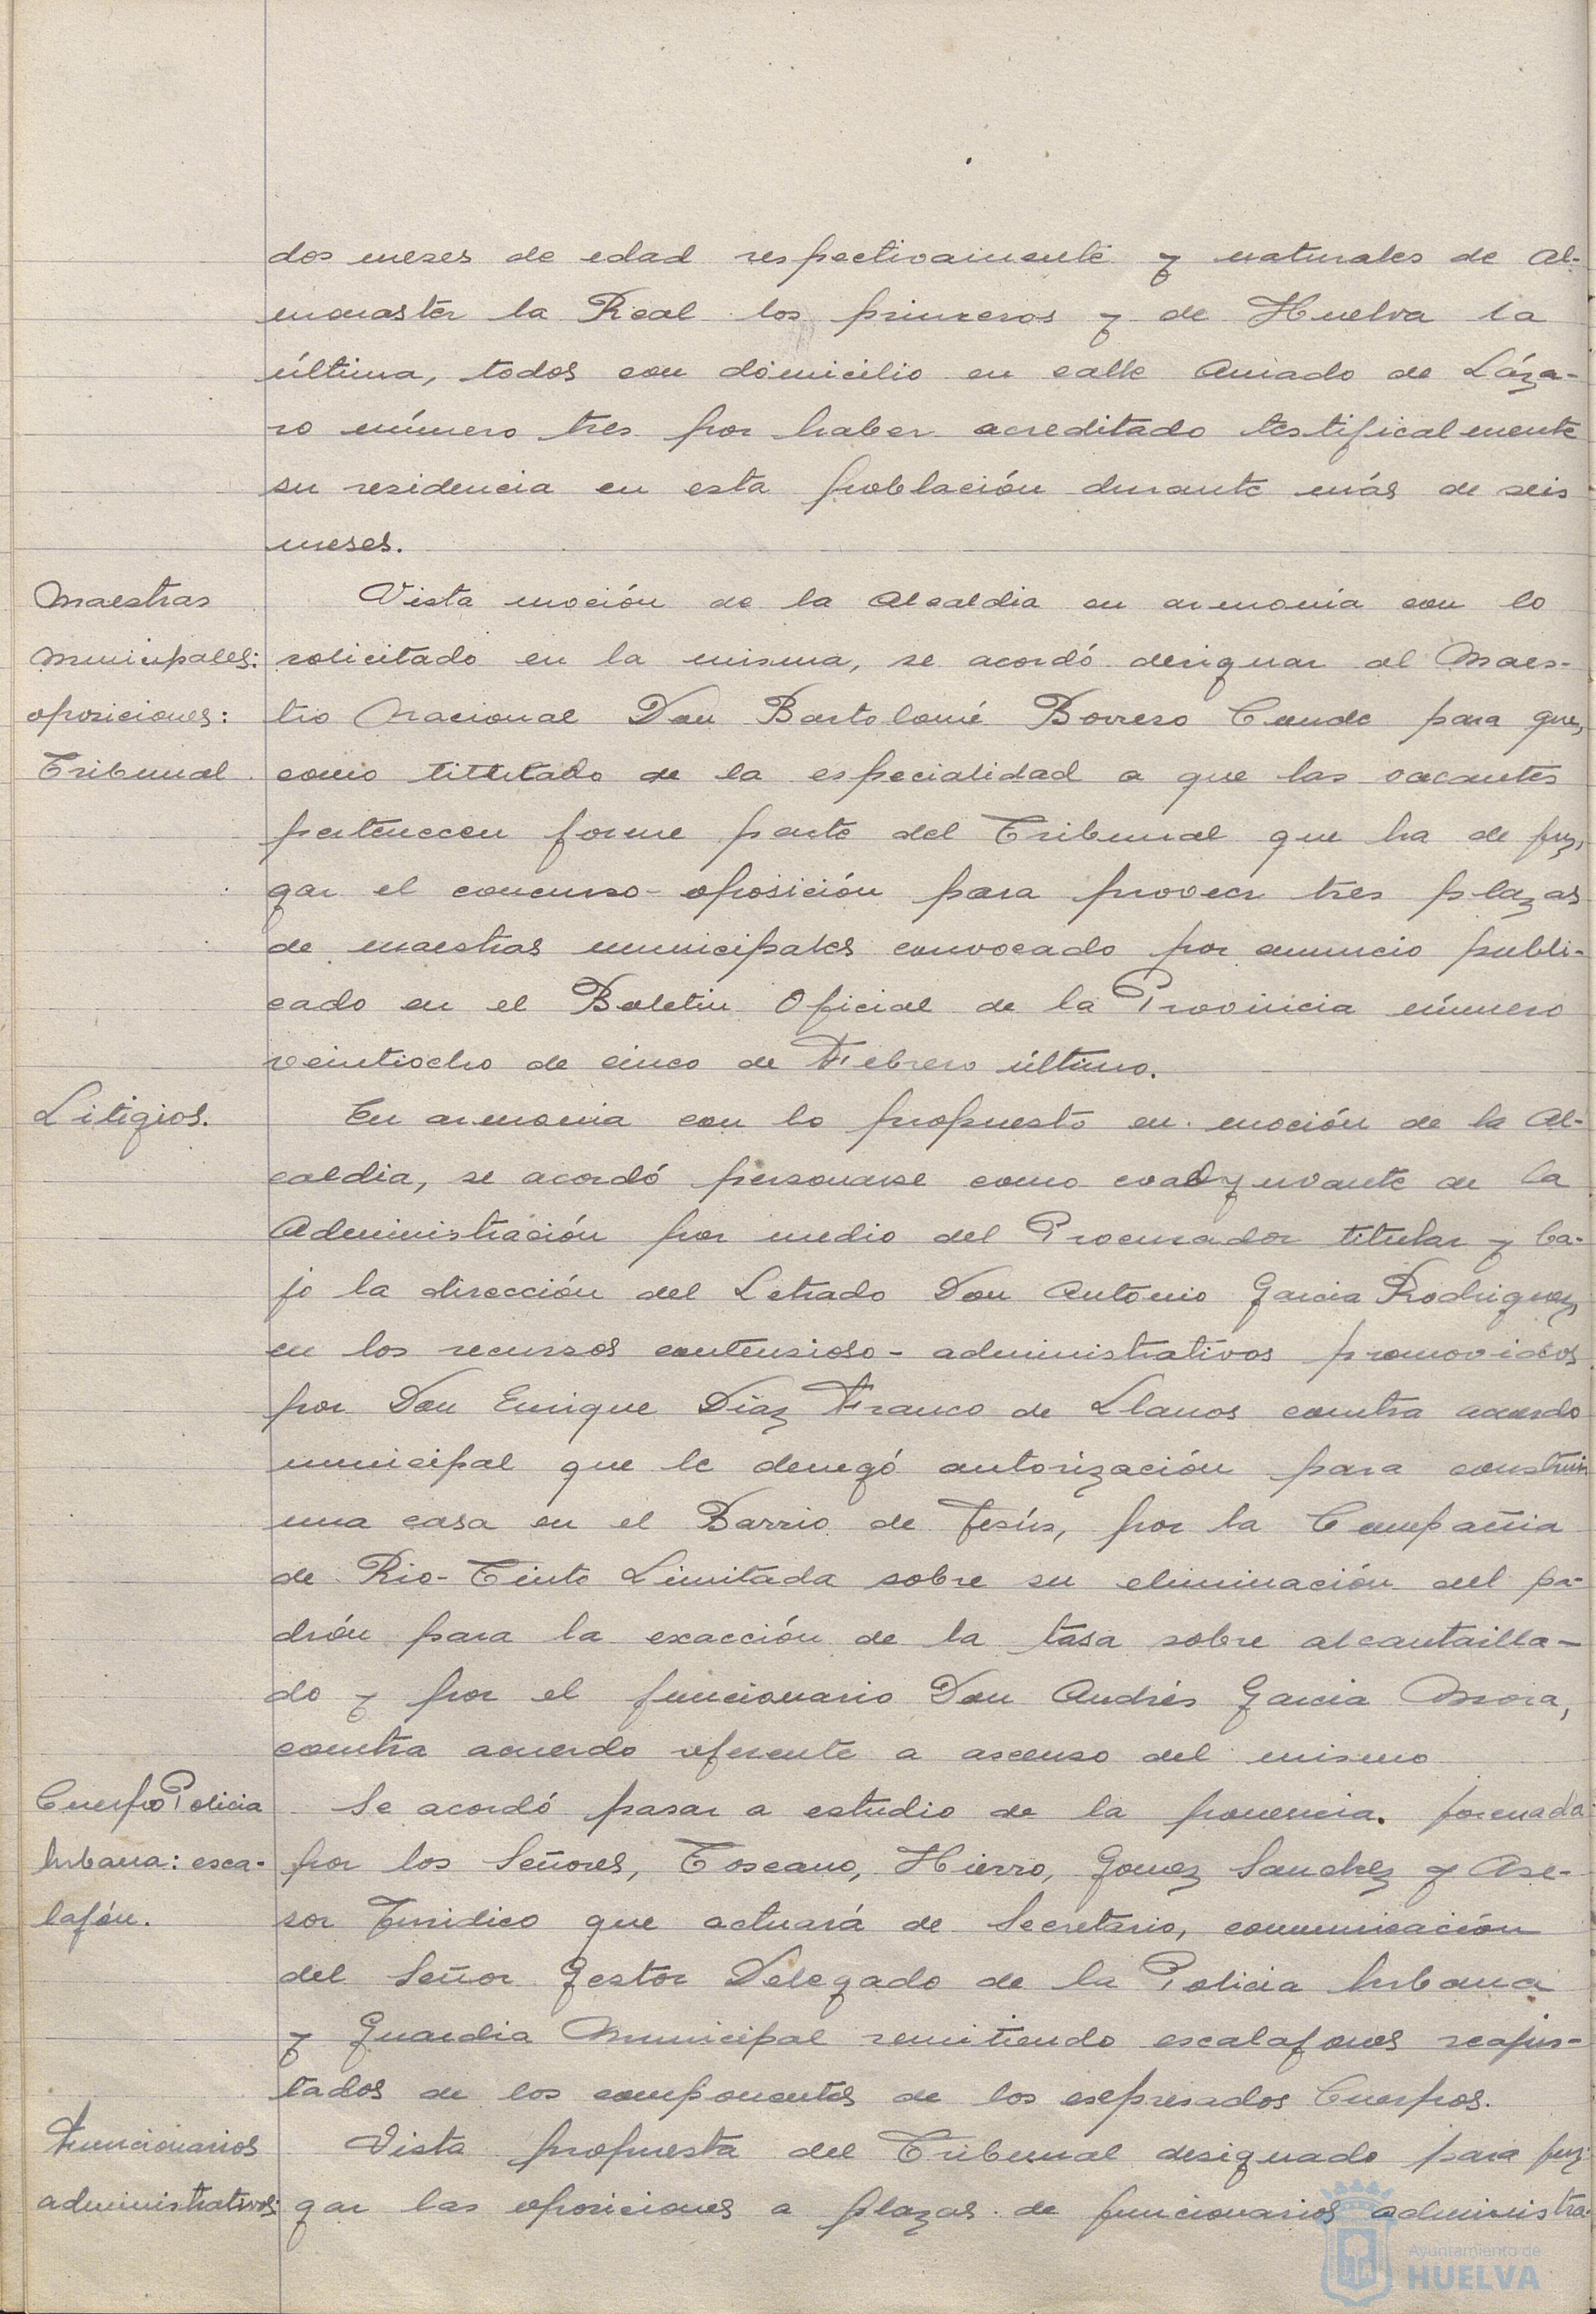 dos meses de edad respectivamente y naturales de Al-
monaster la Real los primeros y de Huelva la
última, todos con domicilio en calle Amado de Láza-
ro número tres por haber acreditado testificalmente
su residencia en esta población durante más de seis
meses.
Maestras
Municipales:
oposiciones:
Tribunal
Vista moción de la Alcaldia en armonia con lo
solicitado en la misma, se acordó designar al Maes-
tro Nacional Don Bartolomé Borrero Conde para que,
como titulado de la especialidad a que las vacantes
pertenecen forme parte del Tribunal que ha de juz-
gar el concurso-oposición para proveer tres plazas
de maestras municipales convocado por anuncio publi-
cado en el Boletin Oficial de la Provincia número
veintiocho de cinco de Febrero último.
Litigios.
En armonia con lo propuesto en moción de la Al-
caldia, se acordó personarse como coadyuvante de la
Administración por medio del Procurador titular y ba-
jo la dirección del Letrado Don Antonio Garcia Rodriguez
en los recursos contensioso-administrativos promovidos
por Don Enrique Diaz Franco de Llanos contra acuerdo
municipal que le denegó autorización para construir
una casa en el Barrio de Jesús, por la Compañia
de Rio-Tinto Limitada sobre su eliminación del pa-
drón para la exacción de la tasa sobre alcantailla-
do y por el funcionario Don Andrés Garcia Mora,
contra acuerdo referente a ascenso del mismo
Cuerpo Policia
Urbana: esca-
lafón.
Se acordó pasar a estudio de la ponencia. formada
por los Señores, Toscano, Hierro, Gomez Sanchez y Ase-
sor Juridico que actuará de Secretario, comunicación
del Señor Gestor Delegado de la Policia Urbana
y Guardia Municipal remitiendo escalafones reajus-
tados de los componentes de los expresados Cuerpos.
Funcionarios
administrativos:
Vista propuesta del Tribunal designado para juz-
gar las oposiciones a plazas de funcionarios administra-
Ayuntamiento de
HUELVA